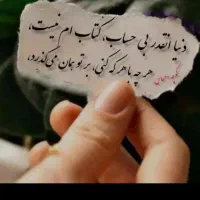 دنیا آنقدر بی حساب کتاب هم نیست،
هر چه با هر که کنی، بر تو همان می‌گذرد،